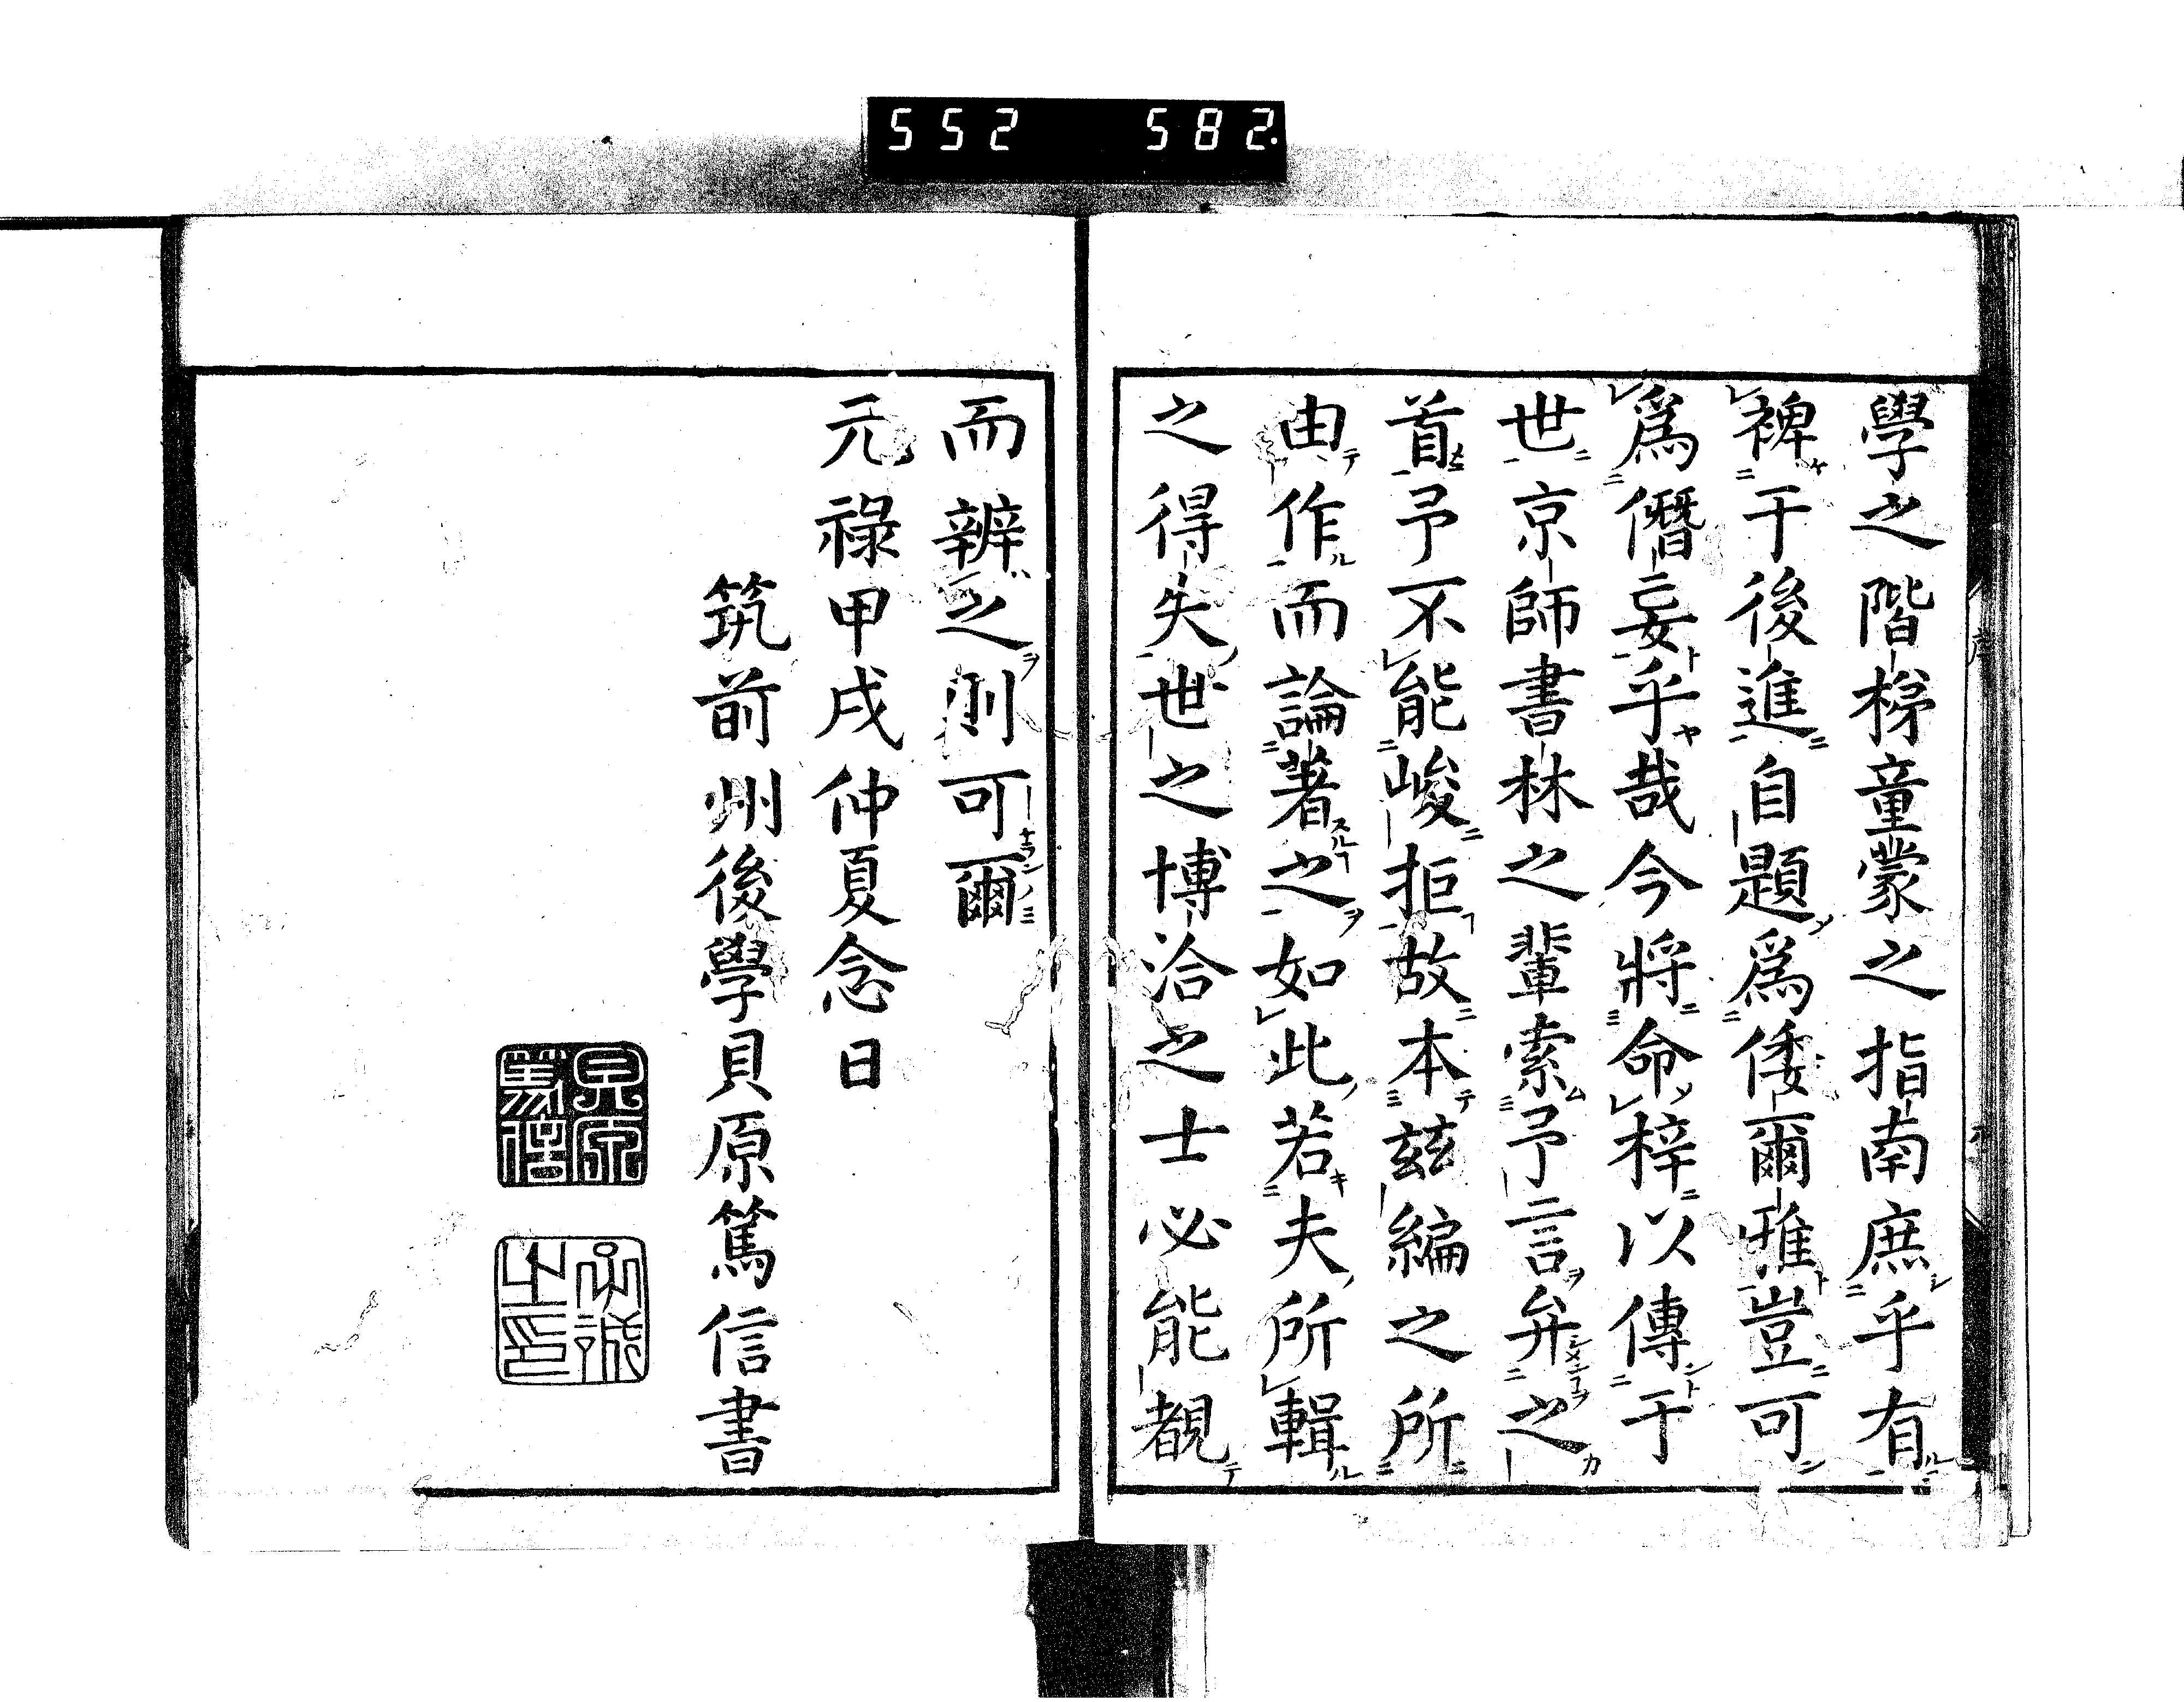 552 582.
學之階梯童蒙之指南庶乎有
裨于後進自題爲倭爾雅豈可
爲僭妄乎哉今將命梓以傳于
世京師書林之輩索予言弁之
首予不能峻拒故本茲編之所
由作而論著之如此若夫所輯
之得失世之博洽之士必能覩
而辨之則可爾
元祿甲戌仲夏念日
筑前州後學貝原篤信書
貝原
篤信